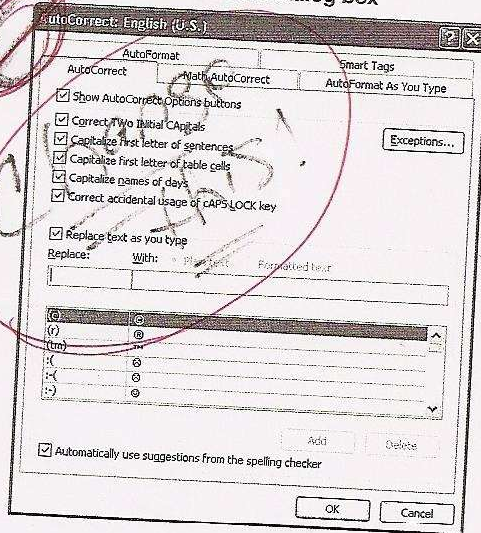 dialog box
AutoCorrect: English (U.S.)
AutoFormat
Smart Tags
AutoCorrect
Math AutoCorrect
AutoFormat As You Type
Show AutoCorrect Options buttons
Correct TWo INitial CApitals
Exceptions...
Capitalize first letter of sentences
Capitalize first letter of table cells
Capitalize names of days
Correct accidental usage of cAPS LOCK key
change this!
Replace text as you type
Replace: With: Plain text Formatted text
(c) ©
(r) ®
(tm) ™
:( ☹
:-( ☹
:-) ☺
Add Delete
Automatically use suggestions from the spelling checker
OK Cancel